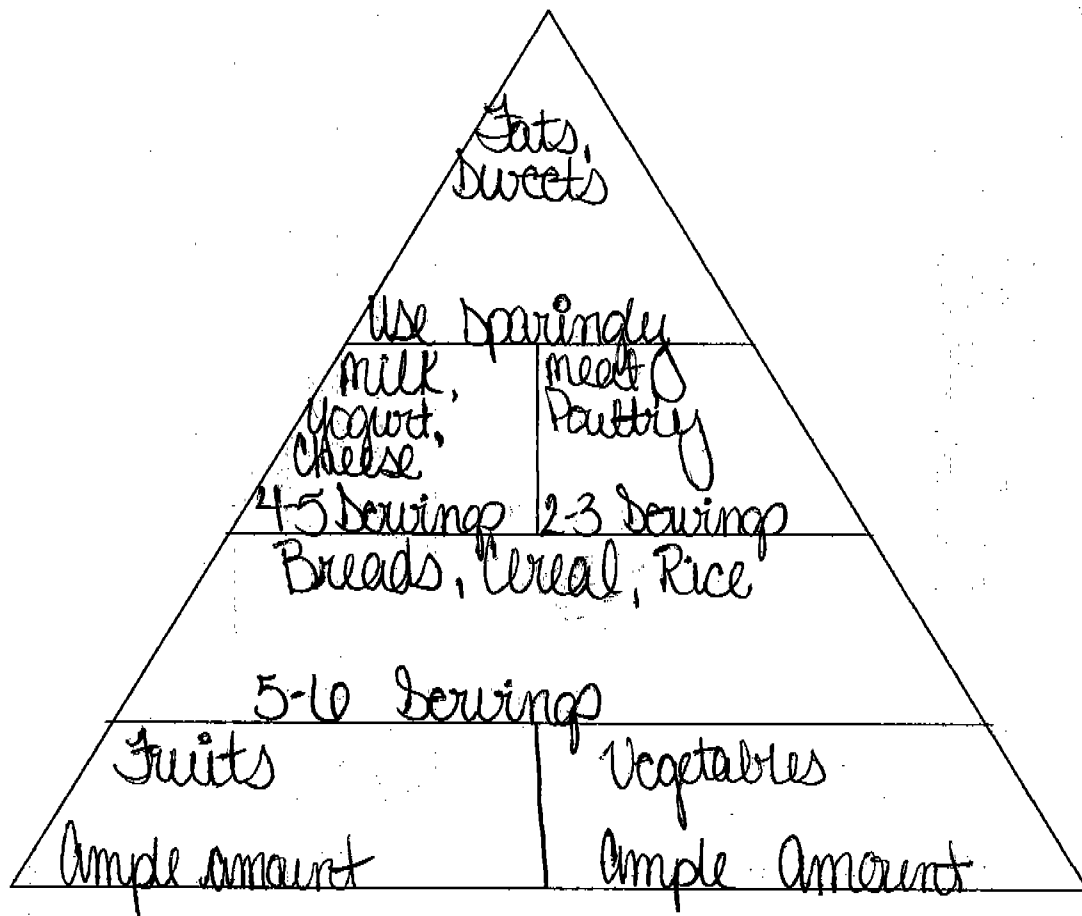 Fats,
Sweets
Use Sparingly
Milk,
Yogurt,
Cheese
4-5 Servings
Meat
Poultry
2-3 Servings
Breads, Cereal, Rice
5-6 Servings
Fruits
Ample amount
Vegetables
Ample Amount